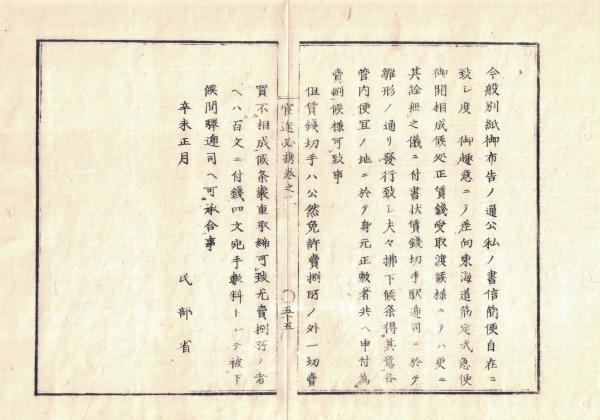 今般別紙御布告ノ通公私ノ書信簡便自在ニ
致シ度　御趣意ニテ差向東海道筋定式急便
御開相成候処正賃錢受取渡候様ニテハ更ニ
其詮無之儀ニ付書状賃錢切手駅逓司ニ於テ
雛形ノ通リ發行致シ夫々拂下候条得其意各
管内便宜ノ地ニ於テ身元正敷者共ヘ申付為
賣捌候様可致事
但賃錢切手ハ公然免許賣捌所ノ外一切賣
宦途必携巻之二
〇五十五
買不相成候条嚴重取締可致尤賣捌所ノ者
ヘハ百文ニ付錢四文宛手數料トシテ被下
候間驛逓司ヘ可承合事
辛未正月
民部省